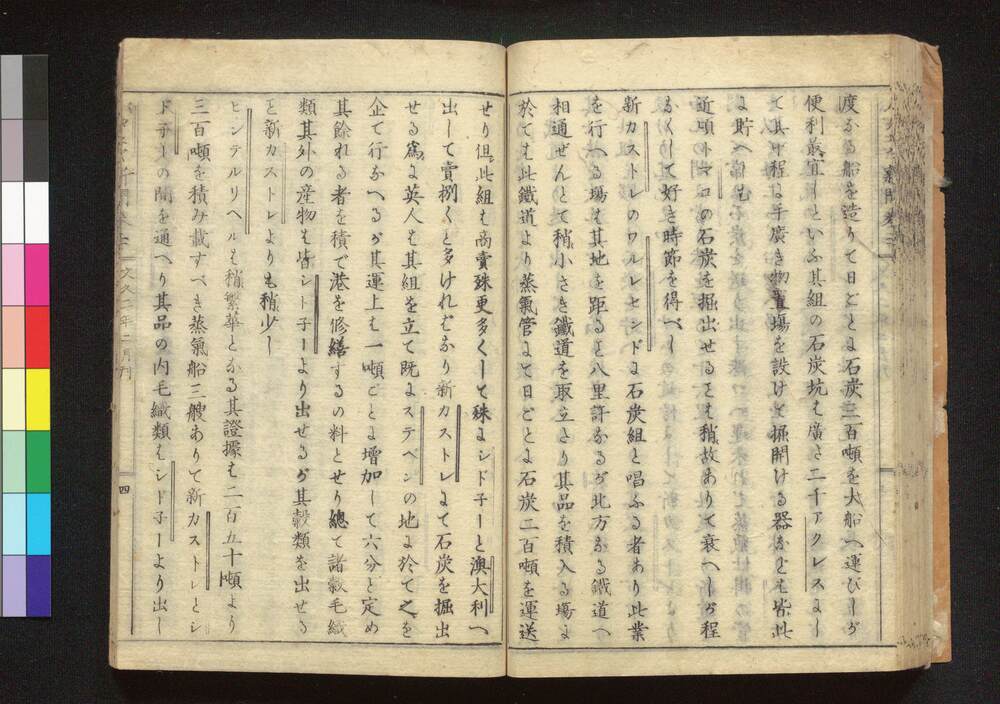 度なる船を造りて日ごとに石炭三百噸を大船へ運びしが
便利最宜しといふ其組の石炭坑は廣さ二千アクレスにし
て其中程に手廣き物置塲を設けて掘開ける器かども皆此
に貯へ置も
近頃トマコの石炭を掘出せるとも稍故ありて衰へしが程
なくして好き時節を得べし
新カストレのワルレセンドに石炭組と唱ふる者あり此業
を行へる塲も其地を距ると八里許なるが北方なる鐵道へ
相通ぜんとて稍小さき鐵道を取立たり其品を積入る塲に
於ても此鐵道より蒸氣管にて日ごとに石炭二百噸を運送
せり但此組は商賣殊更多くして殊にシド子ーと澳大利へ
出して賣捌くと多ければなり新カストレにて石炭を掘出
せる爲に英人も其組を立て既にステベンの地に於て之を
企て行なへるが其運上も一噸ごとに増加して六分と定め
其餘れる者を積で港を修繕するの料とせり總て諸穀毛織
類其外の産物も皆シド子ーより出せるが其穀類を出せる
と新カストレよりも稍少し
ヒンテルリヘルも稍繁華となる其證據は二百五十噸より
三百噸を積み載すべき蒸氣船三艘ありて新カストレとシ
ド子ーの間を通へり其品の内毛織類はシド子ーより出し
文久二年二月刊
四